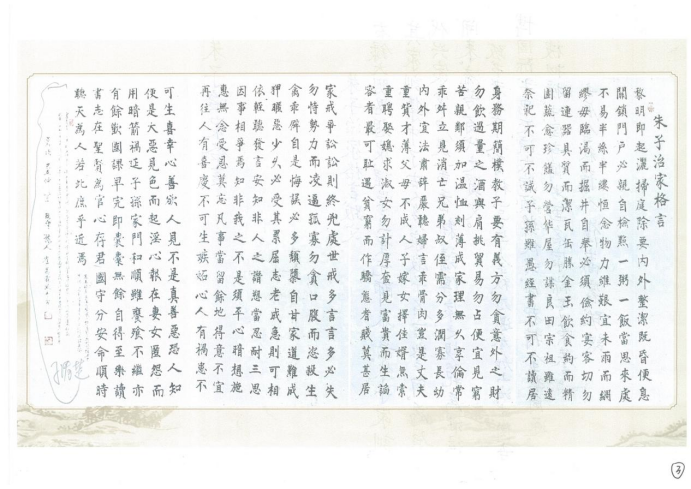 朱子治家格言
黎明即起灑掃庭除要內外整潔既昏便息
關鎖門戶必親自檢點一粥一飯當思來處
不易半絲半縷恆念物力維艱宜未雨而綢
繆毋臨渴而掘井自奉必須儉約宴客切勿
留連器具質而潔瓦缶勝金玉飲食約而精
園蔬愈珍饈勿營華屋勿謀良田宗祖雖遠
祭祀不可不誠子孫雖愚經書不可不讀居
身務期簡樸教子要有義方勿貪意外之財
勿飲過量之酒與肩挑貿易勿占便宜見窮
苦親鄰須加溫恤刻薄成家理無久享倫常
乖舛立見消亡兄弟叔侄需分多潤寡長幼
內外宜法肅辭嚴聽婦言乖骨肉豈是丈夫
重貲才薄父母不成人子嫁女擇佳婿無索
重聘娶媳求淑女勿計厚奩見富貴而生諂
容者最可恥遇貧窮而作驕態者賤莫甚居
家戒爭訟訟則終凶處世戒多言言多必失
勿恃勢力而凌逼孤寡勿貪口腹而恣殺生
禽乖僻自是悔誤必多頹隳自甘家道難成
狎暱惡少久必受其累屈志老成急則可相
依輕聽發言安知非人之譖愬當忍耐三思
因事相爭焉知非我之不是須平心暗想施
惠無念受恩莫忘凡事當留餘地得意不宜
再往人有喜慶不可生嫉妬心人有禍患不
可生喜幸心善欲人見不是真善惡恐人知
便是大惡見色而起淫心報在妻女匿怨而
用暗箭禍延子孫家門和順雖饔飧不繼亦
有餘歡國課早完即囊橐無餘自得至樂讀
書志在聖賢為官心存君國守分安命順時
聽天為人若此庶乎近焉
③